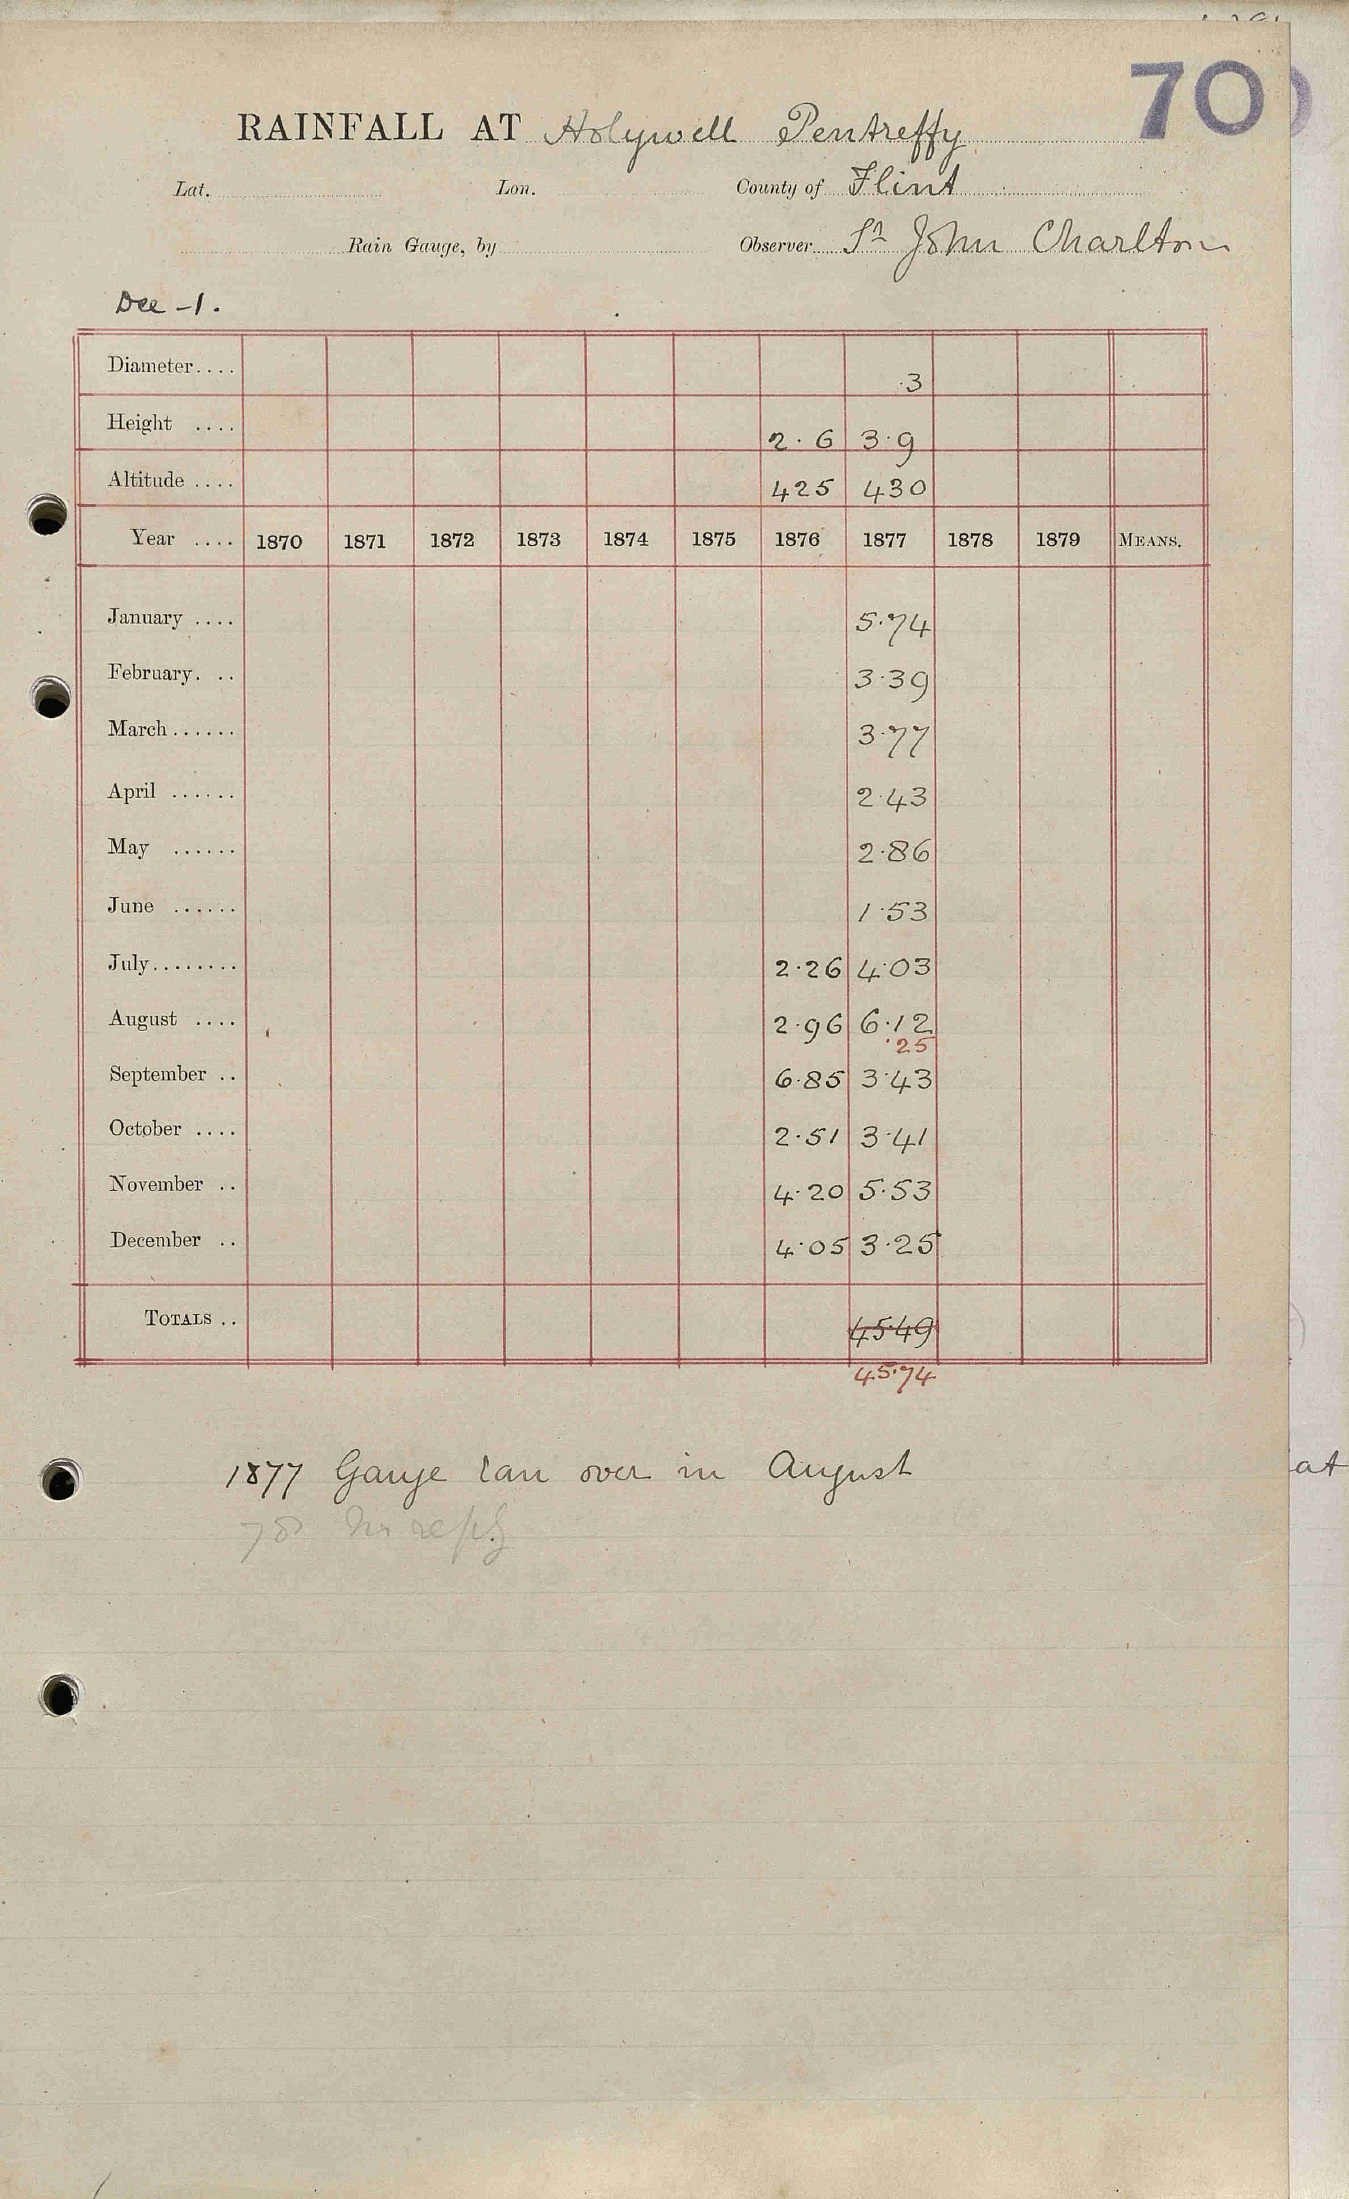 70
RAINFALL AT Holywell Pentreffy
Lat. Lon. County of Flint
Rain Gauge, by Observer St John Charlton
Dee -1.
Diameter.... 3
Height .... 2.6 3.9
Altitude .... 425 430
Year .... 1870 1871 1872 1873 1874 1875 1876 1877 1878 1879 MEANS.
January .... 5.74
February. .. 3.39
March...... 3.77
April ...... 2.43
May ...... 2.86
June ...... 1.53
July........ 2.26 4.03
August .... 2.96 6.12
.25
September .. 6.85 3.43
October .... 2.51 3.41
November .. 4.20 5.53
December .. 4.05 3.25
TOTALS .. 45.49
45.74
1877 Gauge ran over in August
78 No reply
at